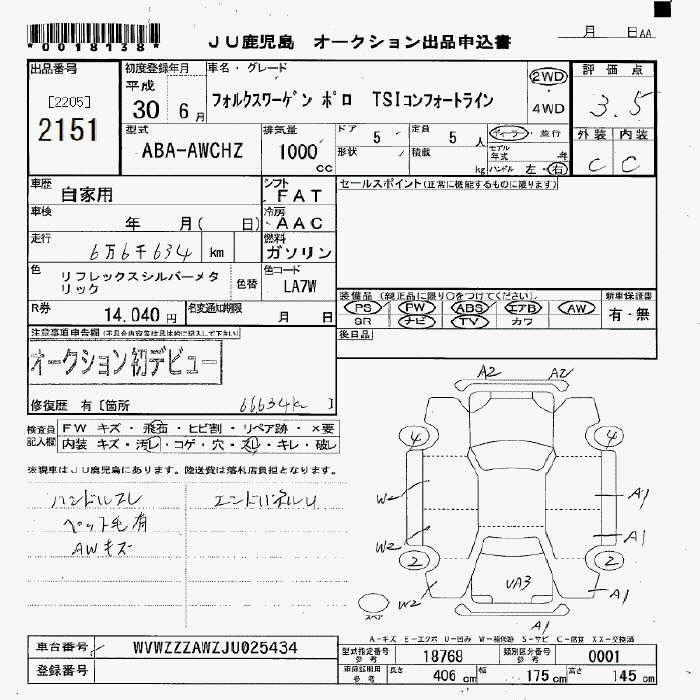 *0018138*
JU鹿児島 オークション出品申込書
月 日AA
出品番号 [2205] 2151
初度登録年月 平成 30 6月
車名・グレード フォルクスワーゲン ポロ TSIコンフォートライン
2WD ・ 4WD
評価点 3.5
外装 内装
C C
型式 ABA-AWCHZ
排気量 1000 cc
ドア 5
形状
定員 5 人
積載 kg
ディーラー・並行
モデル年式 年
ハンドル 左・右
車歴 自家用
シフト FAT
セールスポイント(正常に機能するものに限ります)
車検 年 月( 日)
冷房 AAC
走行 6万6千634 km
燃料 ガソリン
色 リフレックスシルバーメタリック
色替
色コード LA7W
R券 14,040 円
名変通知期限 月 日
装備品 (純正品に限り○をつけてください)
PS PW ABS エアB AW
SR ナビ TV カワ
新車保証書 有・無
後日品
注意事項申告欄 (不具合内容等は具体的に記入して下さい)
オークション初デビュー
修復歴 有 [箇所 66634k ]
検査員記入欄
FW キズ・飛石・ヒビ割・リペア跡・×要
内装 キズ・汚レ・コゲ・穴・スレ・キレ・破レ
※現車はJU鹿児島にあります。陸送費は落札店負担となります。
ハンドルスレ エンドパネルU
ペット毛有
AWキズ
A2 A2
4 4
W2 A1
W2 A1
2 2
W2 UA3 A1
スペア
A1
A-キズ E-エクボ U-凹み W-補修跡 S-サビ C-腐食 XX-交換済
車台番号 WVWZZZAWZJU025434
登録番号
型式指定番号 参考 18768
類別区分番号 参考 0001
車庫証明用 参考 長さ 406 cm 幅 175 cm 高さ 145 cm